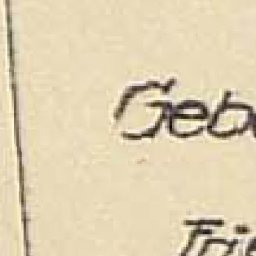 Geb
Fri